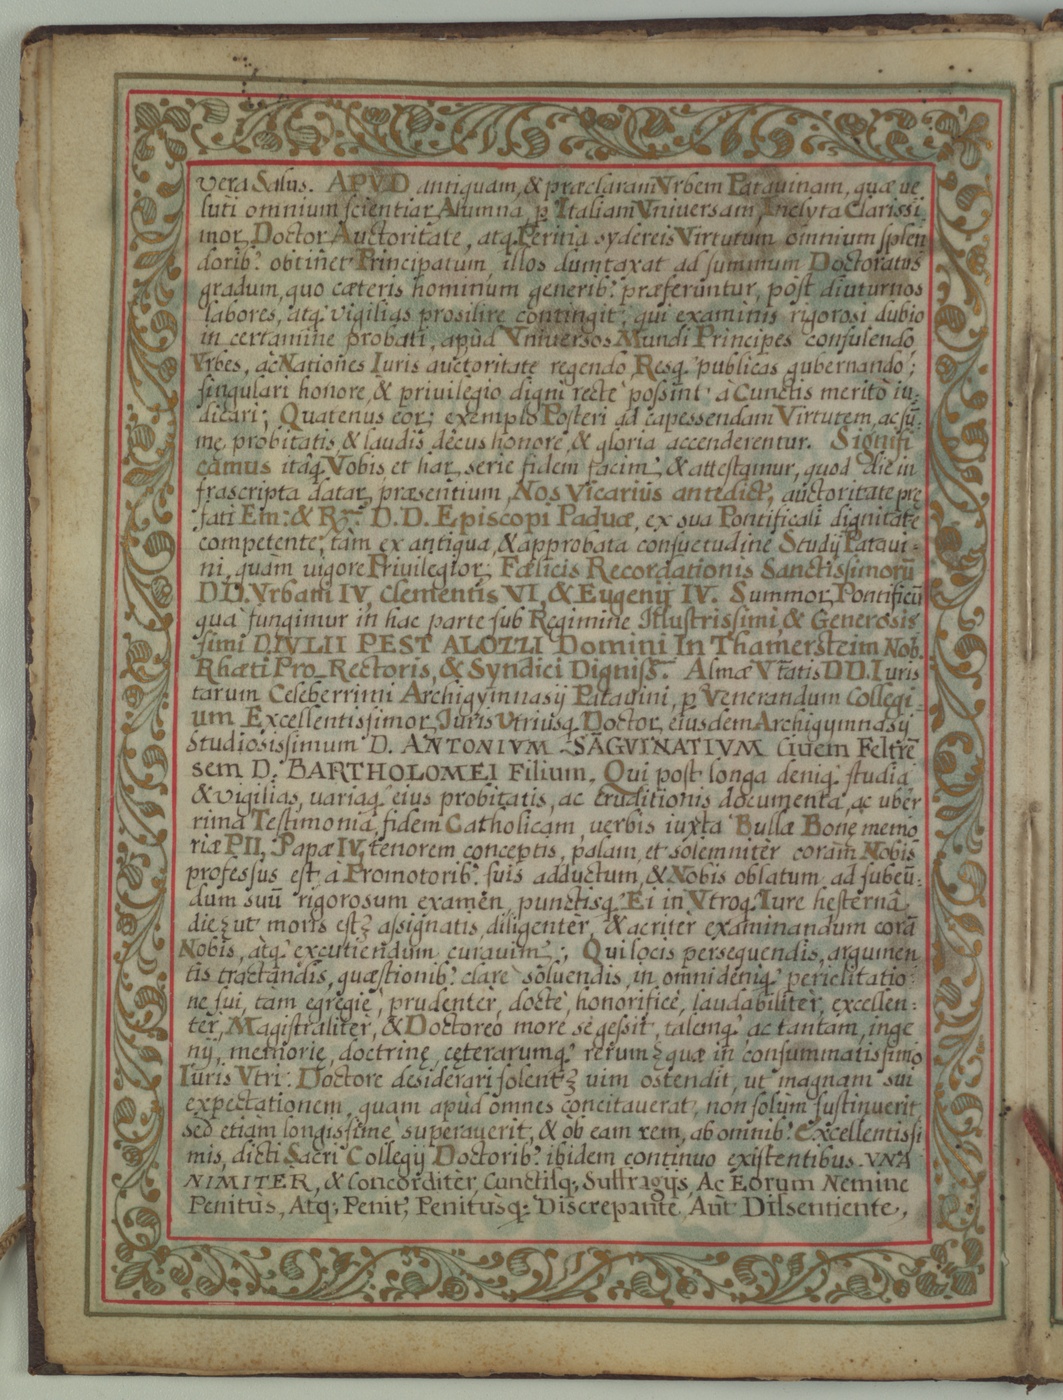 vera Salus. APVD antiquam, & præclaram Vrbem Patauinam, quæ ue
luti omnium scientiar. Alumna, p Italiam Vniuersam, Inclyta Clarissi
mor. Doctor. Auctoritate, atq. Peritia sydereis Virtutum omnium splen
dorib? obtinet Principatum, illos dumtaxat ad summum Doctoratus
gradum, quo cæteris hominum generib? præferuntur, post diuturnos
labores, atq; vigilias prosilire contingit, qui examinis rigorosi dubio
in certamine probati, apud Vniuersos Mundi Principes consulendo,
Vrbes, ac Nationes Iuris auctoritate regendo, Resq; publicas gubernando;
singulari honore, & priuilegio digni recte possint à Cunctis merito iu:
dicari; Quatenus eor; exemplo Posteri ad capessendam Virtutem, ac sũ:
me, probitatis, & laudis decus honore, & gloria accenderentur. Signifi
camus itaq. Vobis, et har. serie fidem facim?, & attestamur, quod die in
frascripta datar. præsentium, Nos Vicarius antedict?, auctoritate pre
fati Em: & R: D. D. Episcopi Paduæ, ex sua Pontificali dignitate
competente, tam ex antiqua, & approbata consuetudine Studij Pataui:
ni, quàm uigore Priuilegior; Fœlicis Recordationis Sanctissimorũ
D D. Vrbani IV, Clementis VI, & Eugenij IV. Summor. Pontificũ
quà fungimur in hac parte sub Regimine Illustrissimi, & Generosis
simi D. IVLII PESTALOZZI Domini In Thamersteim Nob.
Rhæti Pro Rectoris, & Syndici Digniss. Almæ Vtatis D D. Iuris
tarum Celeberrimi Archigymnasij Patauini, p Venerandum Collegi
um Excellentissimor. Iuris Vtriusq. Doctor. eiusdem Archigymnasij
Studiosissimum D. ANTONIVM SAGVINATIVM Ciuem Feltrẽ
sem D. BARTHOLOMEI Filium. Qui post longa deniq. studia
& vigilias, uariaq. eius probitatis, ac eruditionis documenta, ac uber
rima Testimonia, fidem Catholicam, uerbis iuxta Bullæ Bonę memo
riæ PII, Papæ IV, tenorem conceptis, palam, et solemnitèr coram Nobis
professus est, à Promotorib? suis adductum, & Nobis oblatum ad subeũ:
dum suũ rigorosum examen, punctisq. Ei in Vtroq. Iure hesterna
die, ut moris est, assignatis, diligentèr, & acritèr examinandum corã
Nobis, atq; excutiendum curauim?; Qui locis persequendis, argumen
tis tractandis, quæstionib? clare soluendis, in omni deniq. periclitatio:
ne sui, tam egregiè, prudenter, doctè, honorificè, laudabiliter, excellen:
tèr, Magistraliter, & Doctoreo more se gessit, talemq; ac tantam, inge
nij, memorię, doctrinę, cęterarumq; rerum, quæ in consummatissimo
Iuris Vtri: Doctore desiderari solent, uim ostendit, ut magnam sui
expectationem, quam apud omnes concitauerat, non solùm sustinuerit,
sed etiam longissimè superauerit, & ob eam rem, ab omnib? Excellentissi
mis, dicti Sacri Collegij Doctorib? ibidem continuo existentibus VNA
NIMITER, & Concorditèr, Cunctisq; Suffragijs, Ac Eorum Nemine
Penitùs, Atq; Penit; Penitùsq; Discrepante, Aut Dissentiente,